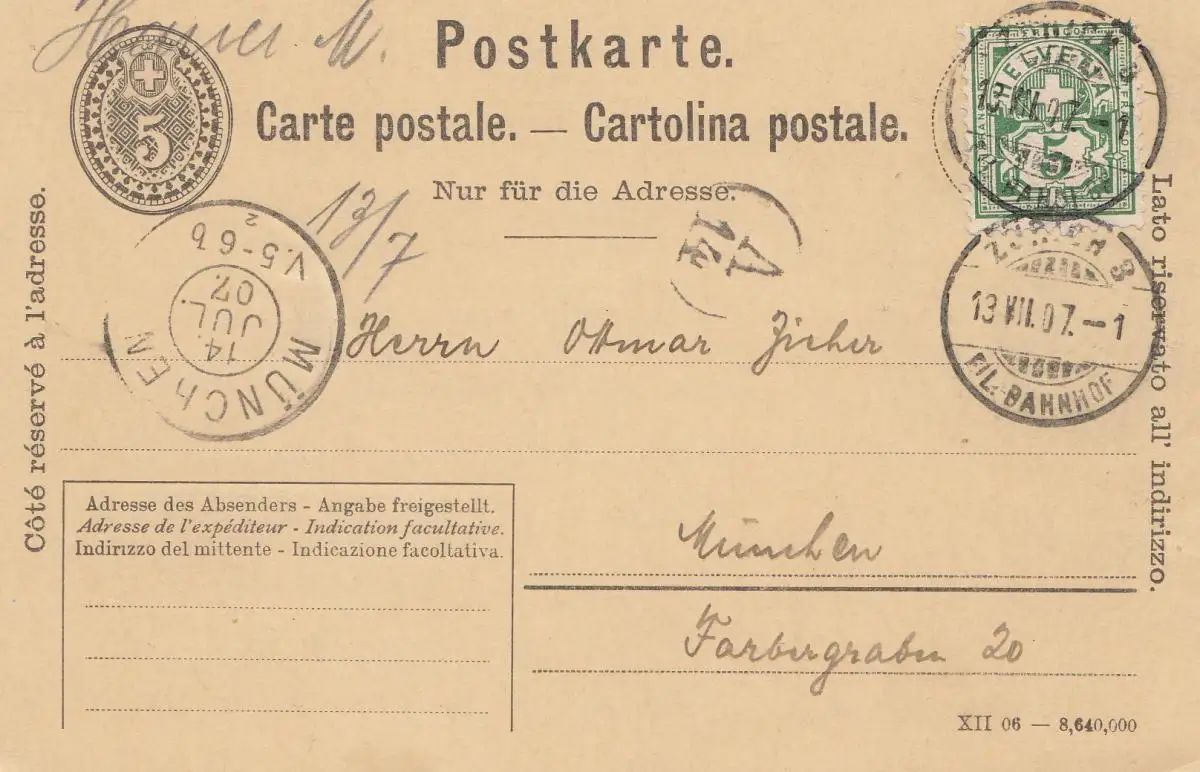 Heuer M.
Postkarte.
Carte postale. — Cartolina postale.
Nur für die Adresse.
5
HELVETIA
5
13/7
A
14
V. 5-6 b
2
14.
JUL.
07.
MÜNCHEN
ZÜRICH 3
13 VII. 07. – 1
FIL. BAHNHOF
Côté réservé à l'adresse.
Lato riservato all' indirizzo.
Herrn Ottmar Zieher
München
Farbergraben 20
Adresse des Absenders - Angabe freigestellt.
Adresse de l'expéditeur - Indication facultative.
Indirizzo del mittente - Indicazione facoltativa.
XII 06 — 8,640,000